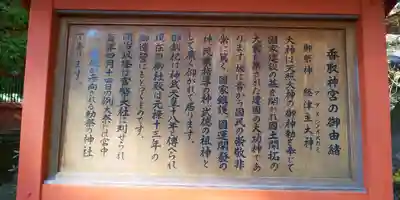 香取神宮の御由緒
御祭神 經津主大神
大神は天照大神の御神勅を奉じて
国家建設の基を開かれ国土開拓の
大業を果された建国の大功神であ
ります故に昔から国民の崇敬非
常に篤く国家鎮護 国運開発の
神 民業指導の神 武徳の祖神と
して廣く仰がれて居ります
御創祀は神武天皇十八年と傳へられ
現在の御社殿は元禄十三年の
御造営にかゝるものです
明治以後は官幣大社に列せられ
毎年四月十四日の例大祭には宮中
参向される勅祭の神社
であります